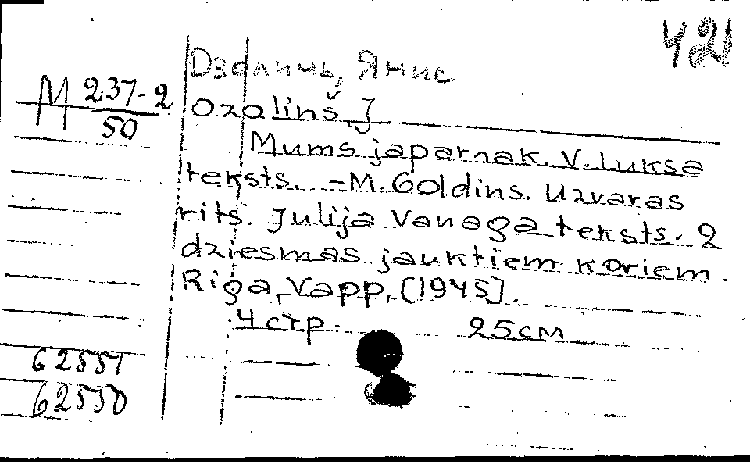 421
Озолинь, Янис
M 237-2
50
Ozolinš, J
Mums japarnak. V. Luksa
teksts. - M. Goldins. Uzvaras
rits. Julija Vanaga teksts. 2
dziesmas jauktiem koriem.
Riga, Vapp, [1945]
4 стр. 25 см
62551
62550